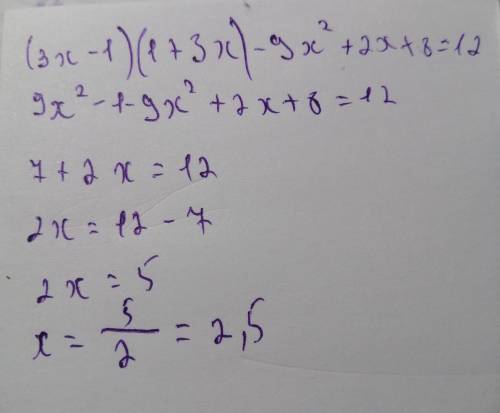 (3x-1)(1+3x)-9x²+2x+8=12
9x²-1-9x²+2x+8=12
7+2x=12
2x=12-7
2x=5
x=5/2=2,5